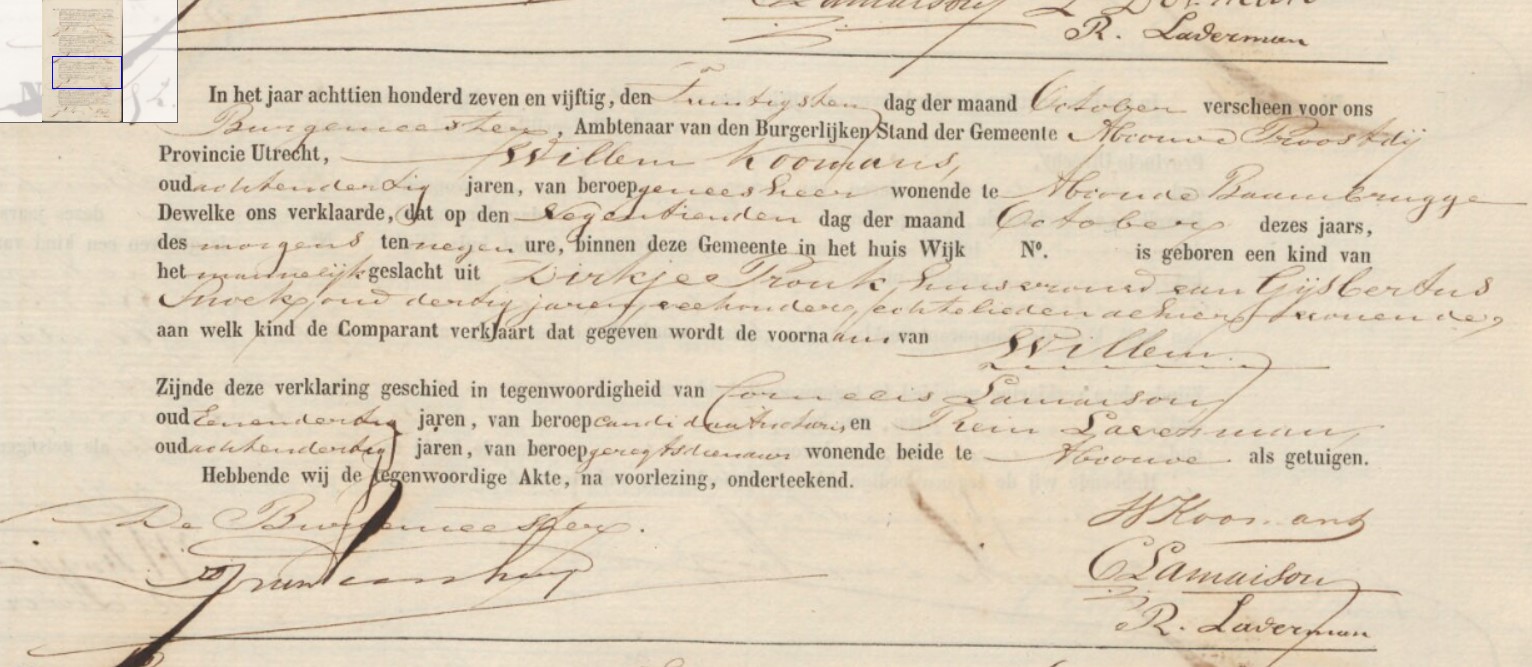 C Lamaison
R. Laverman
In het jaar achttien honderd zeven en vijftig, den Twintigsten dag der maand October verscheen voor ons
Burgemeester, Ambtenaar van den Burgerlijken Stand der Gemeente Abcoude Proostdij
Provincie Utrecht, Willem Koomans,
oud achtendertig jaren, van beroep geneesheer wonende te Abcoude Baambrugge
Dewelke ons verklaarde, dat op den Negentienden dag der maand October dezes jaars,
des morgens ten negen ure, binnen deze Gemeente in het huis Wijk N°. is geboren een kind van
het mannelijk geslacht uit Dirkje Pronk huisvrouw van Gijsbertus
Snoek, oud dertig jaren, echtelieden alhier wonende,
aan welk kind de Comparant verklaart dat gegeven wordt de voornaam van
Willem.
Zijnde deze verklaring geschied in tegenwoordigheid van Cornelis Lamaison
oud Eenendertig jaren, van beroep candidaat notaris, en Rein Laverman,
oud achtendertig jaren, van beroep geregtsdienaar wonende beide te Abcoude als getuigen.
Hebbende wij de tegenwoordige Akte, na voorlezing, onderteekend.
De Burgemeester.
W Koomans
C Lamaison
R. Laverman